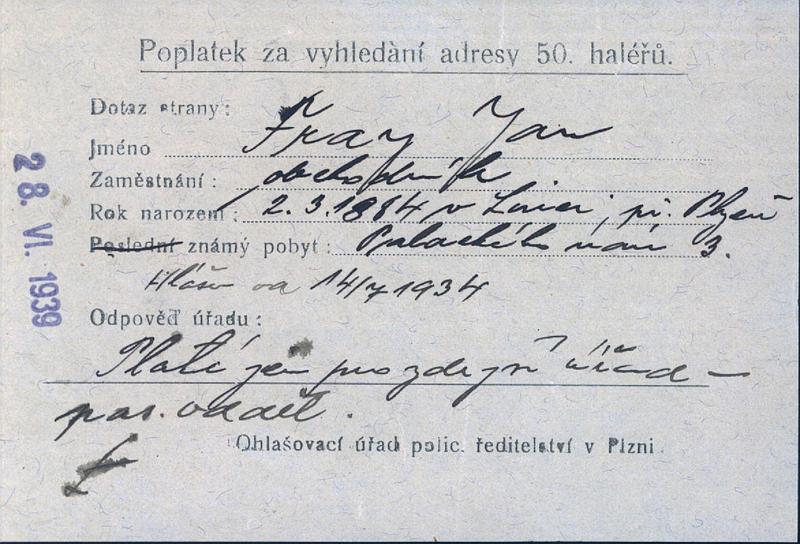 Poplatek za vyhledání adresy 50. haléřů.
Dotaz strany:
Jméno Fray Jan
Zaměstnání: obchodník.
Rok narození: 2.3.1884 v Linci, př. Plzeň
Poslední známý pobyt: Palackého nám 3.
Hlášen od 14/7 1934
Odpověď úřadu:
Platí jen pro zdejší úřad –
pas. odděl.
Ohlašovací úřad polic. ředitelství v Plzni
28. VI. 1939